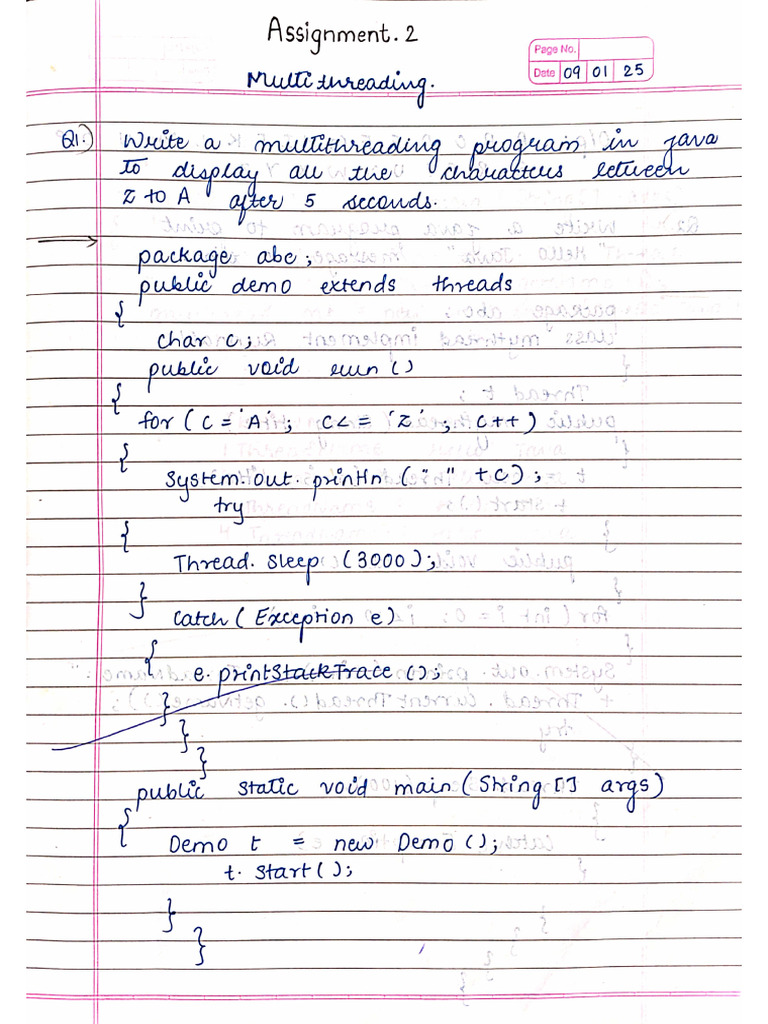 Assignment. 2
Page No.
Multithreading.
Date 09 01 25
Q1.) Write a multithreading program in java
to display all the characters between
Z to A after 5 seconds.
package abc;
public demo extends threads
{
char c;
public void run ()
{
for ( c = 'A' ; c <= 'Z' ; c++ )
{
System.out.println (" " + c) ;
try
{
Thread. sleep (3000);
}
catch ( Exception e)
{
e. printStackTrace ();
}
}
}
public static void main (String [] args)
{
Demo t = new Demo ();
t. start ();
}
}